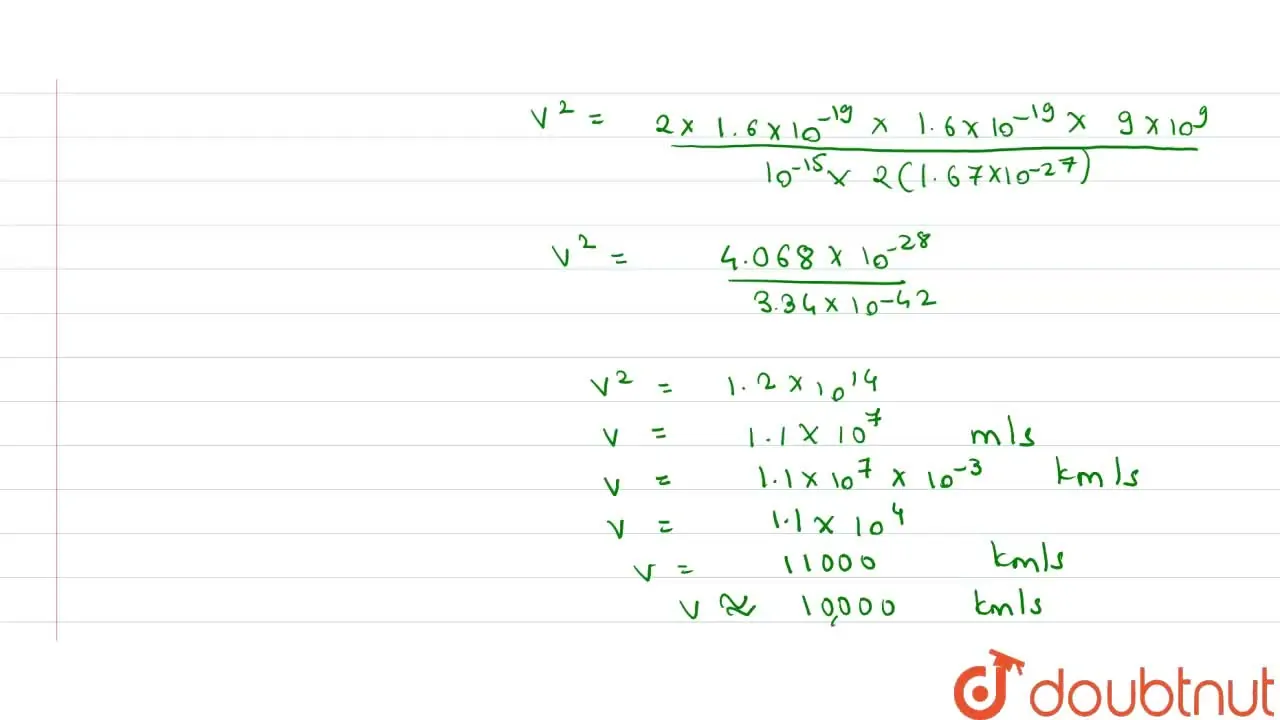 v² = 2 × 1.6 × 10⁻¹⁹ × 1.6 × 10⁻¹⁹ × 9 × 10⁹
10⁻¹⁵ × 2(1.67 × 10⁻²⁷)
v² = 4.068 × 10⁻²⁸
3.34 × 10⁻⁴²
v² = 1.2 × 10¹⁴
v = 1.1 × 10⁷ m/s
v = 1.1 × 10⁷ × 10⁻³ km/s
v = 1.1 × 10⁴
v = 11000 km/s
v ≈ 10,000 km/s
doubtnut